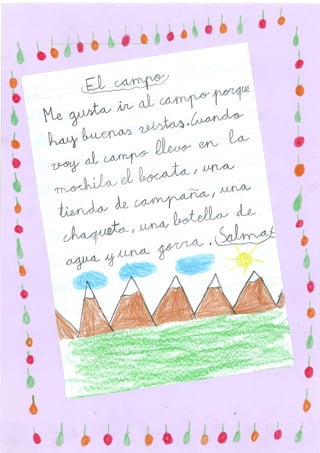 El campo
Me gusta ir al campo porque
hay buenas vistas. Cuando
voy al campo llevo en la
mochila el bocata, una
tienda de campaña, una
chaqueta, una botella de
agua y una gorra. Salma